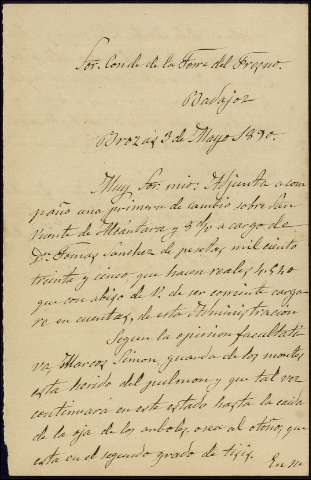 Sor. Conde de la Torre del Fresno.
Badajoz
Brozas 3 de Mayo 1890.
Muy Sor. mio: Adjunta acom
paño una primera de cambio sobre San
Vicente de Alcantara y 8 d/v a cargo de
Dn. Tomas Sanchez de pesetas mil ciento
treinta y cinco que hacen reales 4540
que con abiso de V. de ser corriente carga
re en cuentas, de esta Administracion
Segun la opinion facultati
va, Marcos Simon, guarda de los montes
esta herido del pulmon y que tal vez
continuará en este estado hasta la caida
de la oja de los arboles, osea al otoño, que
esta en el segundo grado de tisis.